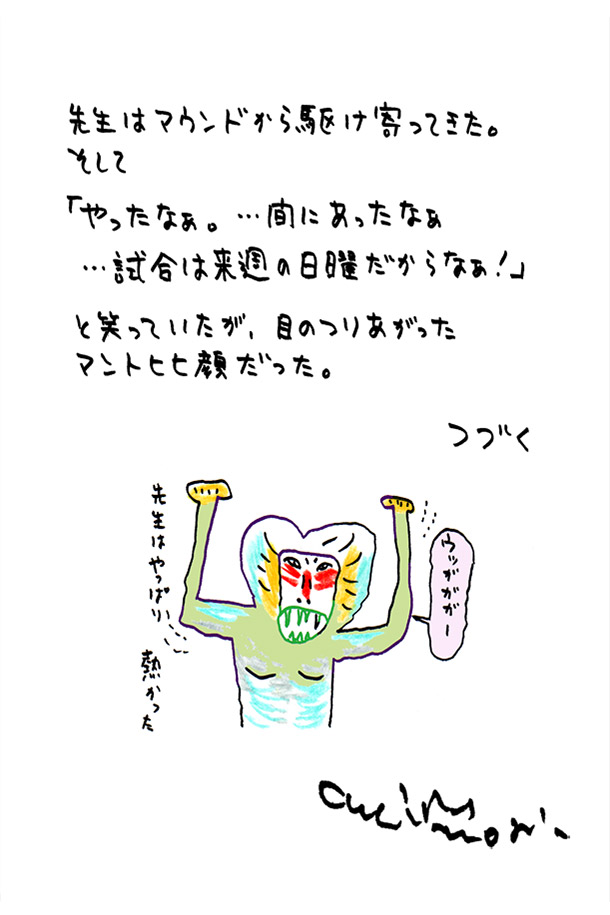 先生はマウンドから駆け寄ってきた。
そして
「やったなぁ。…間にあったなぁ
…試合は来週の日曜だからなぁ!」
と笑っていたが、目のつりあがった
マントヒヒ顔だった。
つづく
先生はやっぱり、、、
熱かった
ウッががガー